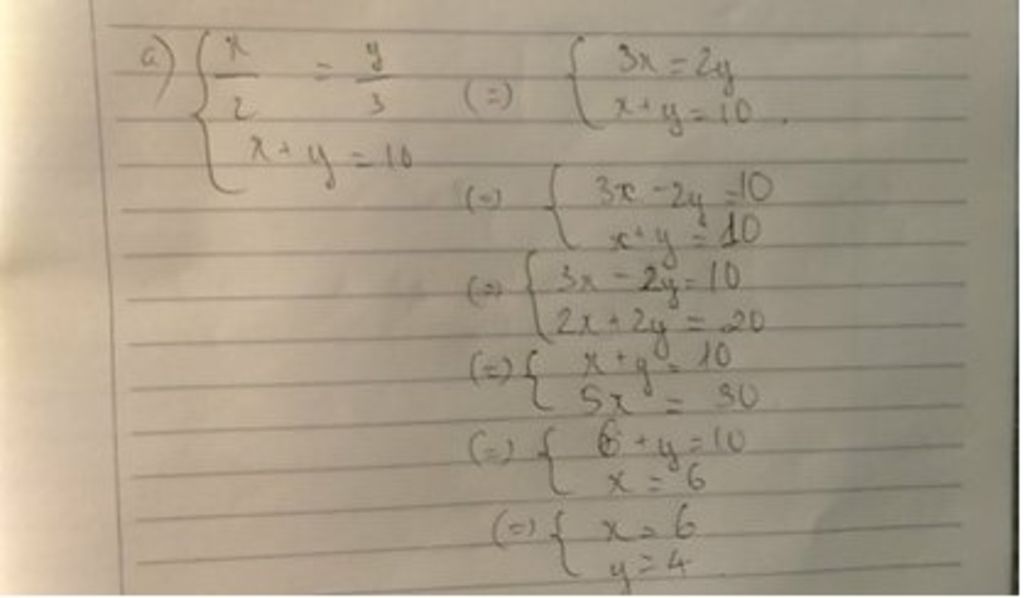 a) { x/2 = y/3 (=) { 3x = 2y
x + y = 10 x + y = 10 .
(=) { 3x - 2y = 10
x + y = 10
(=) { 3x - 2y = 10
2x + 2y = 20
(=) { x + y = 10
5x = 30
(=) { 6 + y = 10
x = 6
(=) { x = 6
y = 4